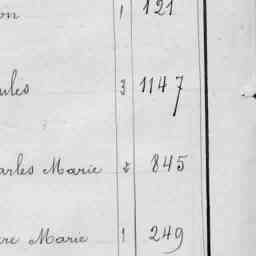 on 1 121
ules 3 1147
arles Marie 2 845
re Marie 1 249